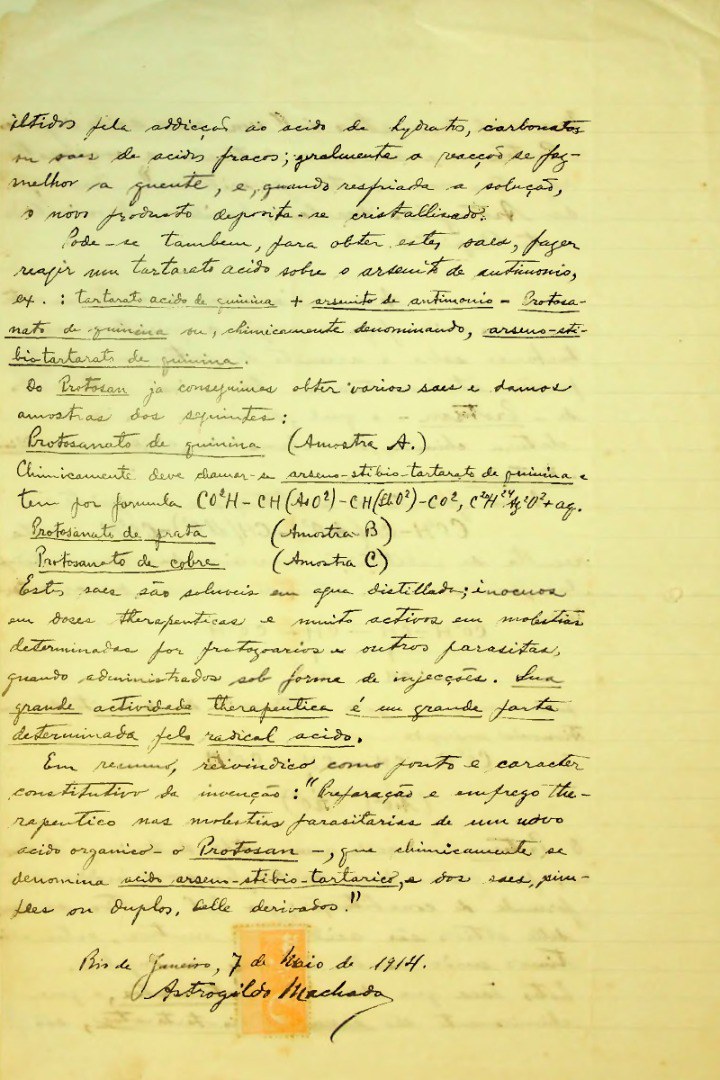 obtidos pela addicção ao acido de hydratos, carbonatos
ou saes de acidos fracos; geralmente a reacção se faz
melhor a quente, e, quando resfriada a solução,
o novo producto deposita-se cristallisado.
Pode-se tambem, para obter estes saes, fazer
reagir um tartarato acido sobre o arsenito de antimonio,
ex. : tartarato acido de quinina + arsenito de antimonio = Protosa-
nato de quinina ou, chimicamente denominando, arseno-sti-
bio-tartarato de quinina.
Do Protosan já conseguimos obter varios saes e damos
amostras dos seguintes:
Protosanato de quinina (Amostra A.)
Chimicamente deve chamar-se arseno-stibio-tartarato de quinina e
tem por formula CO²H - CH(AsO²) - CH(SbO²) - CO², C²⁰H²⁴Az²O² + aq.
Protosanato de prata (Amostra B)
Protosanato de cobre (Amostra C)
Estes saes são soluveis em agua distillada; inocuos
em doses therapeuticas e muito activos em molestias
determinadas por protozoarios e outros parasitas,
quando administrados sob forma de injecções. Sua
grande actividade therapeutica é em grande parte
determinada pelo radical acido.
Em resumo, reivindico como ponto e caracter
constitutivo da invenção: "Preparação e emprego the-
rapeutico nas molestias parasitarias de um novo
acido organico - o Protosan -, que chimicamente se
denomina acido arseno-stibio-tartarico, e dos saes, sim-
ples ou duplos, delle derivados."
Rio de Janeiro, 7 de Maio de 1914.
Astrogildo Machado